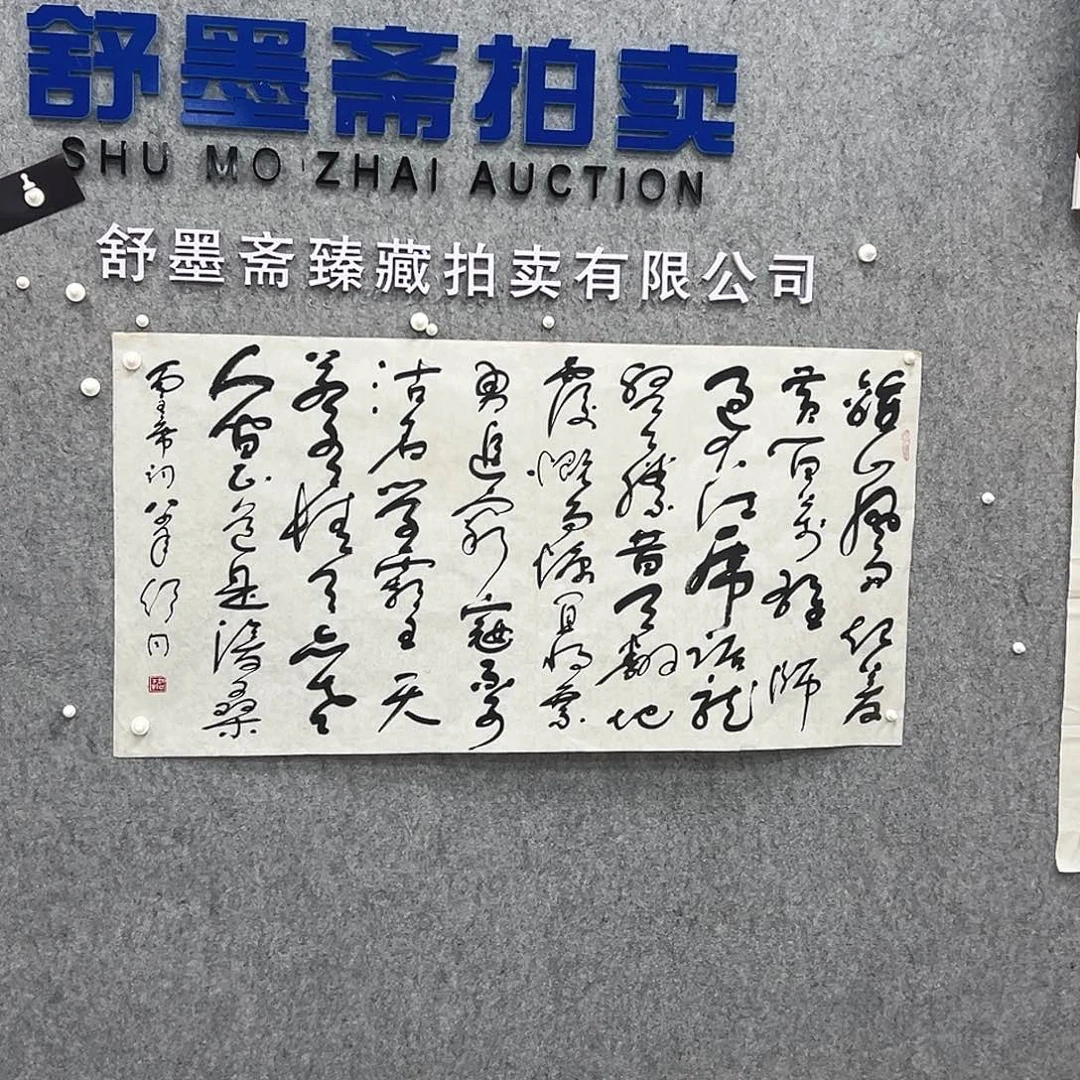 舒墨斋拍卖
SHU MO ZHAI AUCTION
舒墨斋臻藏拍卖有限公司
鍾山風雨起蒼
黄百萬雄師
過大江虎踞龍
盤今勝昔天翻地
覆慨而慷宜將剩
勇追窮寇不可
沽名學霸王天
若有情天亦老
人间正道是滄桑
主席词 舒同